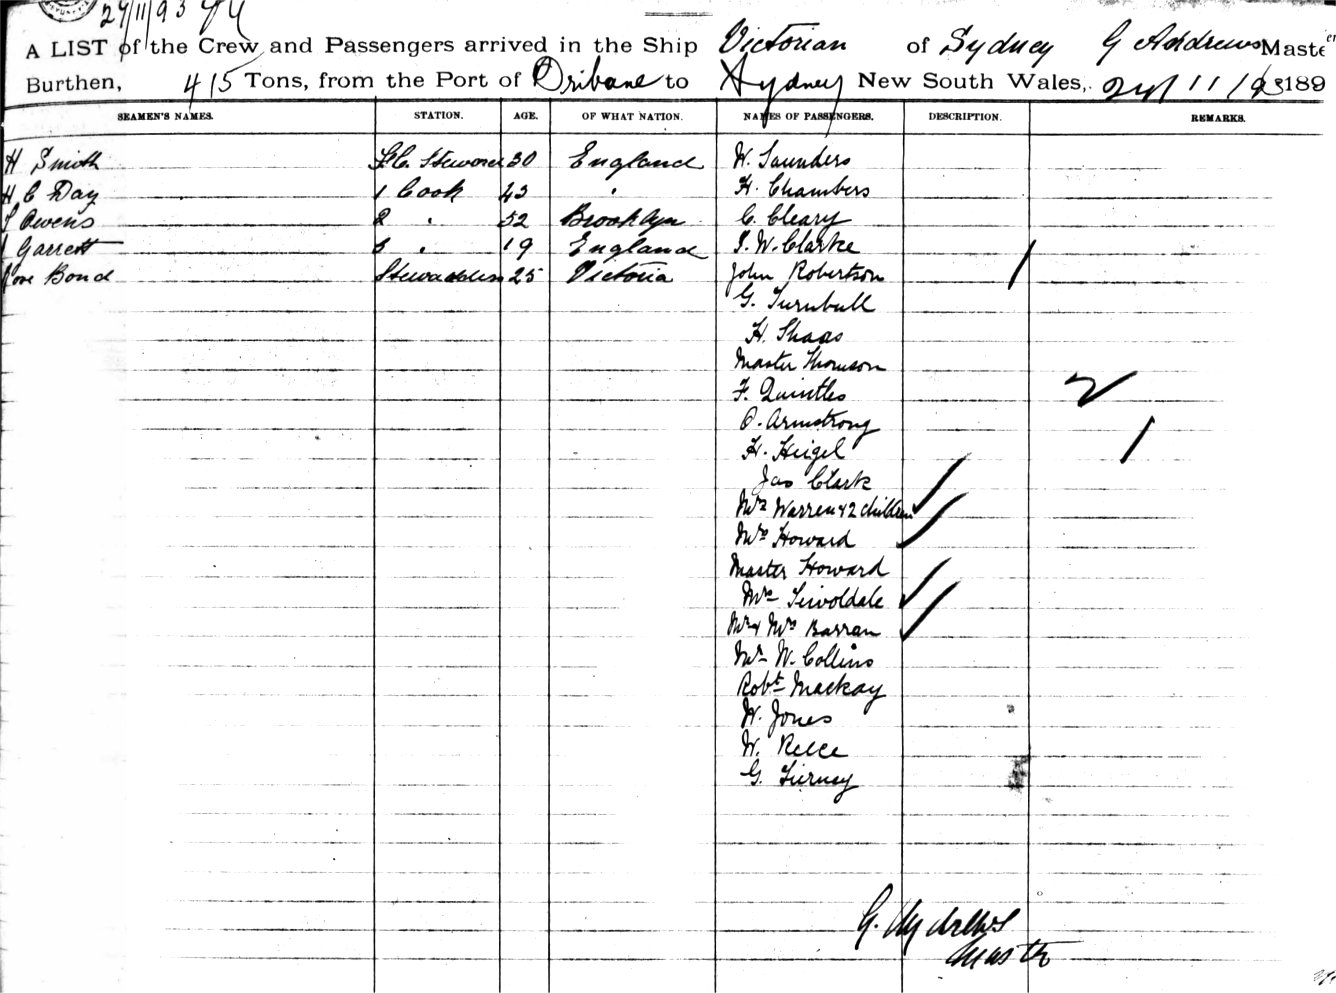 24/11/93
A LIST of the Crew and Passengers arrived in the Ship Victorian of Sydney G Andrews Master
Burthen, 415 Tons, from the Port of Brisbane to Sydney New South Wales, 24/11/93 189
SEAMEN'S NAMES. STATION. AGE. OF WHAT NATION. NAMES OF PASSENGERS. DESCRIPTION. REMARKS.
H Smith F.C. Steward 30 England W. Saunders
H C Day 1 Cook 43 " H. Chambers
Owens 2 " 52 Brooklyn C. Cleary
Garrett 3 " 19 England J. W. Clarke
Bond Stewaddess 25 Victoria John Robertson
G. Turnbull
H. Shaas
Master Thomson
F. Quintles
O. Armstrong
H. Heigel
Jas Clark
Mrs Warren & 2 children
Mrs Howard
Master Howard
Mrs
Mr & Mrs Barran
Mr W. Collins
Robt Mackay
W. Jones
W. Reece
G. Tierney
G. Andrews
Master